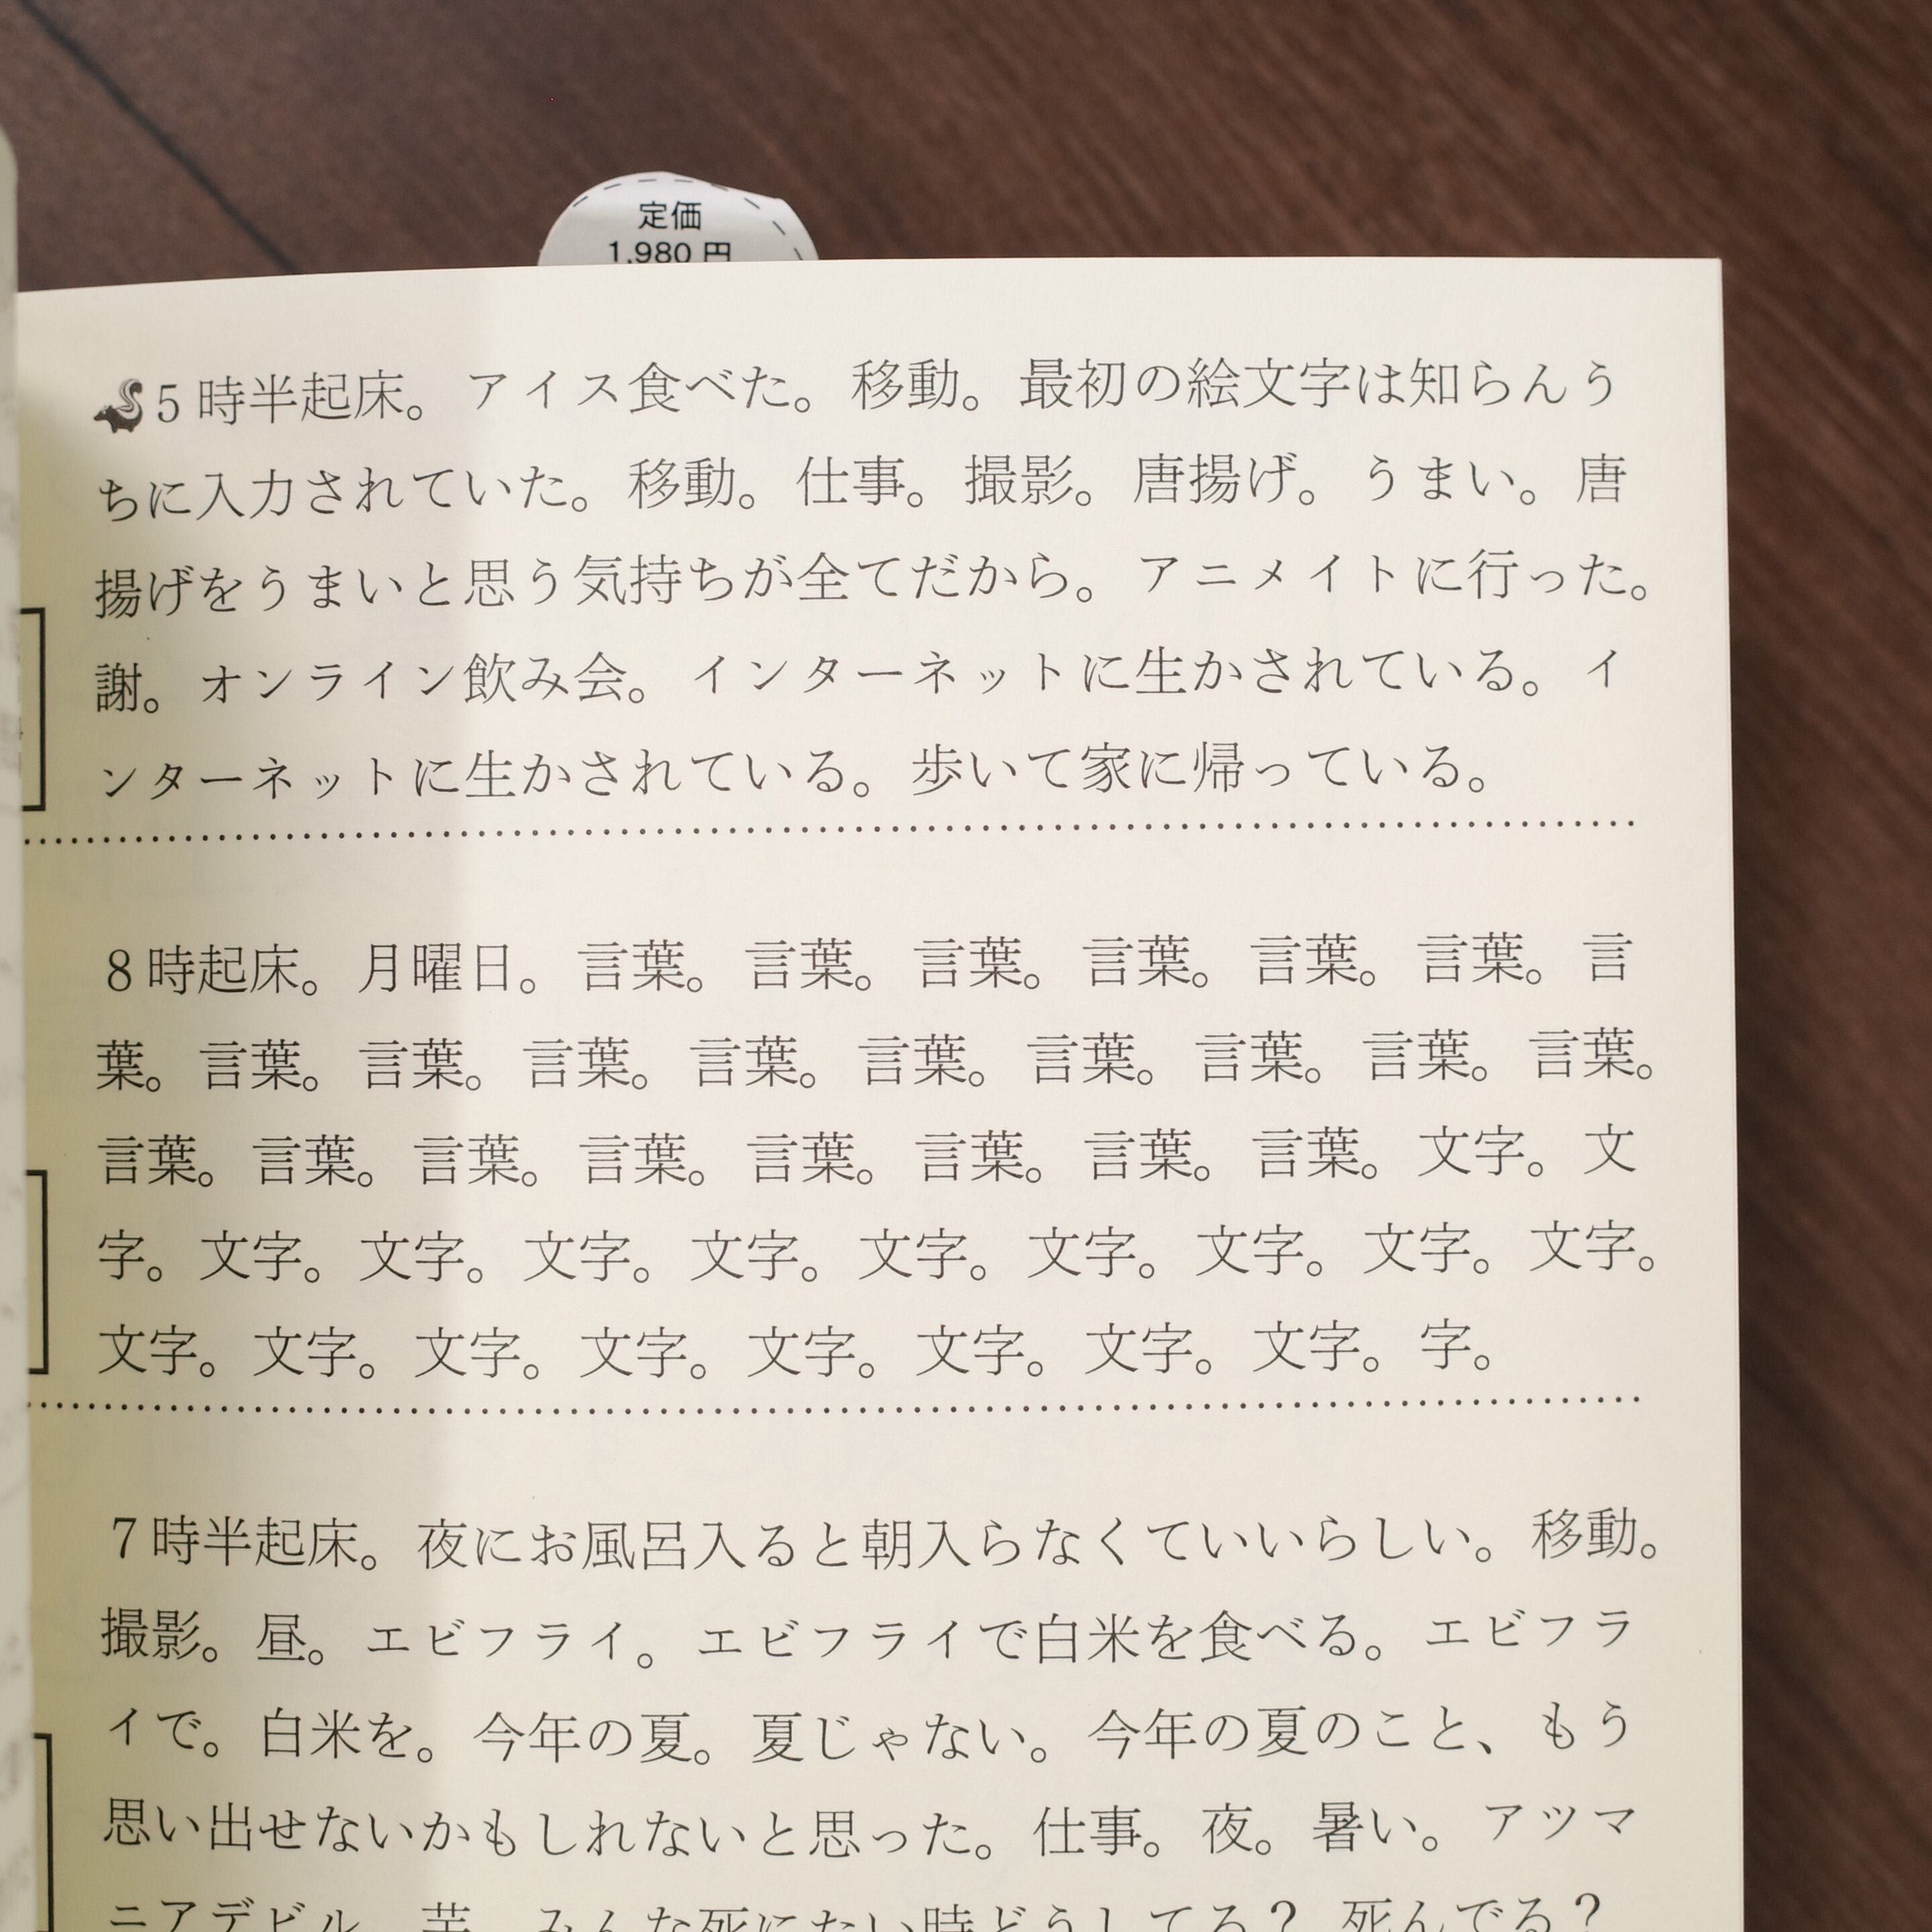 定価
1,980 円
🦨5時半起床。アイス食べた。移動。最初の絵文字は知らんう
ちに入力されていた。移動。仕事。撮影。唐揚げ。うまい。唐
揚げをうまいと思う気持ちが全てだから。アニメイトに行った。
謝。オンライン飲み会。インターネットに生かされている。イ
ンターネットに生かされている。歩いて家に帰っている。
8時起床。月曜日。言葉。言葉。言葉。言葉。言葉。言葉。言
葉。言葉。言葉。言葉。言葉。言葉。言葉。言葉。言葉。言葉。
言葉。言葉。言葉。言葉。言葉。言葉。言葉。言葉。文字。文
字。文字。文字。文字。文字。文字。文字。文字。文字。文字。
文字。文字。文字。文字。文字。文字。文字。文字。字。
7時半起床。夜にお風呂入ると朝入らなくていいらしい。移動。
撮影。昼。エビフライ。エビフライで白米を食べる。エビフラ
イで。白米を。今年の夏。夏じゃない。今年の夏のこと、もう
思い出せないかもしれないと思った。仕事。夜。暑い。アツマ
ニアデビル みんな死にたい時どうしてる？死んでる？